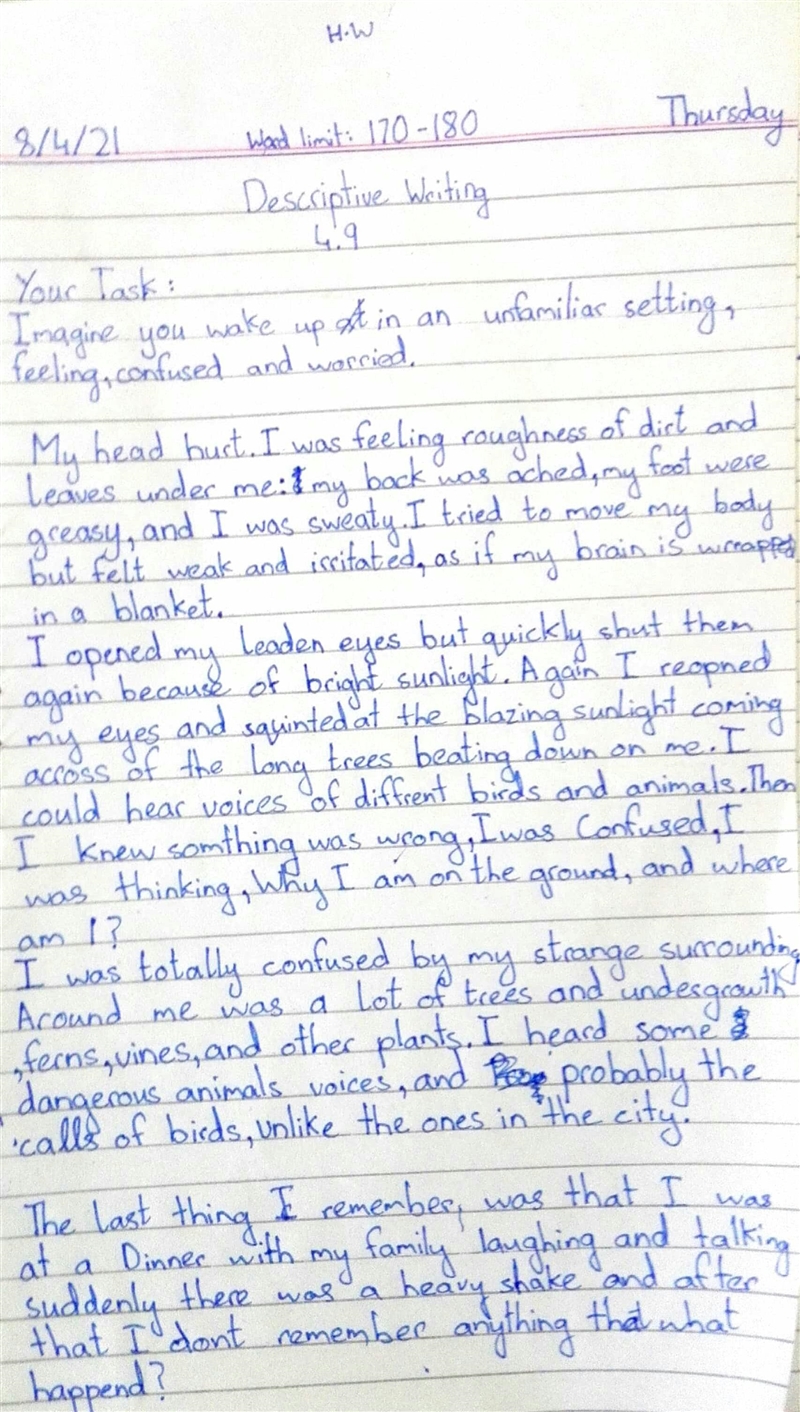 H.W
8/4/21 Word limit: 170-180 Thursday
Descriptive Writing
4.9
Your Task:
Imagine you wake up in an unfamiliar setting,
feeling, confused and worried.
My head hurt. I was feeling roughness of dirt and
leaves under me: my back was ached, my foot were
greasy, and I was sweaty. I tried to move my body
but felt weak and irritated, as if my brain is wrapped
in a blanket.
I opened my leaden eyes but quickly shut them
again because of bright sunlight. Again I reopned
my eyes and squinted at the blazing sunlight coming
accross of the long trees beating down on me. I
could hear voices of diffrent birds and animals. Then
I knew somthing was wrong, I was Confused, I
was thinking, Why I am on the ground, and where
am I?
I was totally confused by my strange surrounding
Around me was a lot of trees and undergrowth
, ferns, vines, and other plants. I heard some
dangerous animals voices, and probably the
calls of birds, unlike the ones in the city.
The last thing I remember, was that I was
at a Dinner with my family laughing and talking
suddenly there was a heavy shake and after
that I dont remember anything that what
happend?